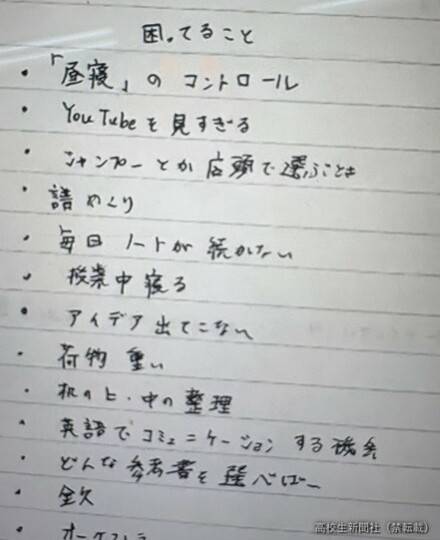 困ってること
・「昼寝」のコントロール
・YouTubeを見すぎる
・シャンプーとか店頭で選ぶとき
・譜めくり
・毎日ノートが続かない
・授業中寝る
・アイデア出てこない
・荷物重い
・机の上・中の整理
・英語でコミュニケーションする機会
・どんな参考書を選べば〜
・金欠
・オーケストラ
高校生新聞社（禁転載）